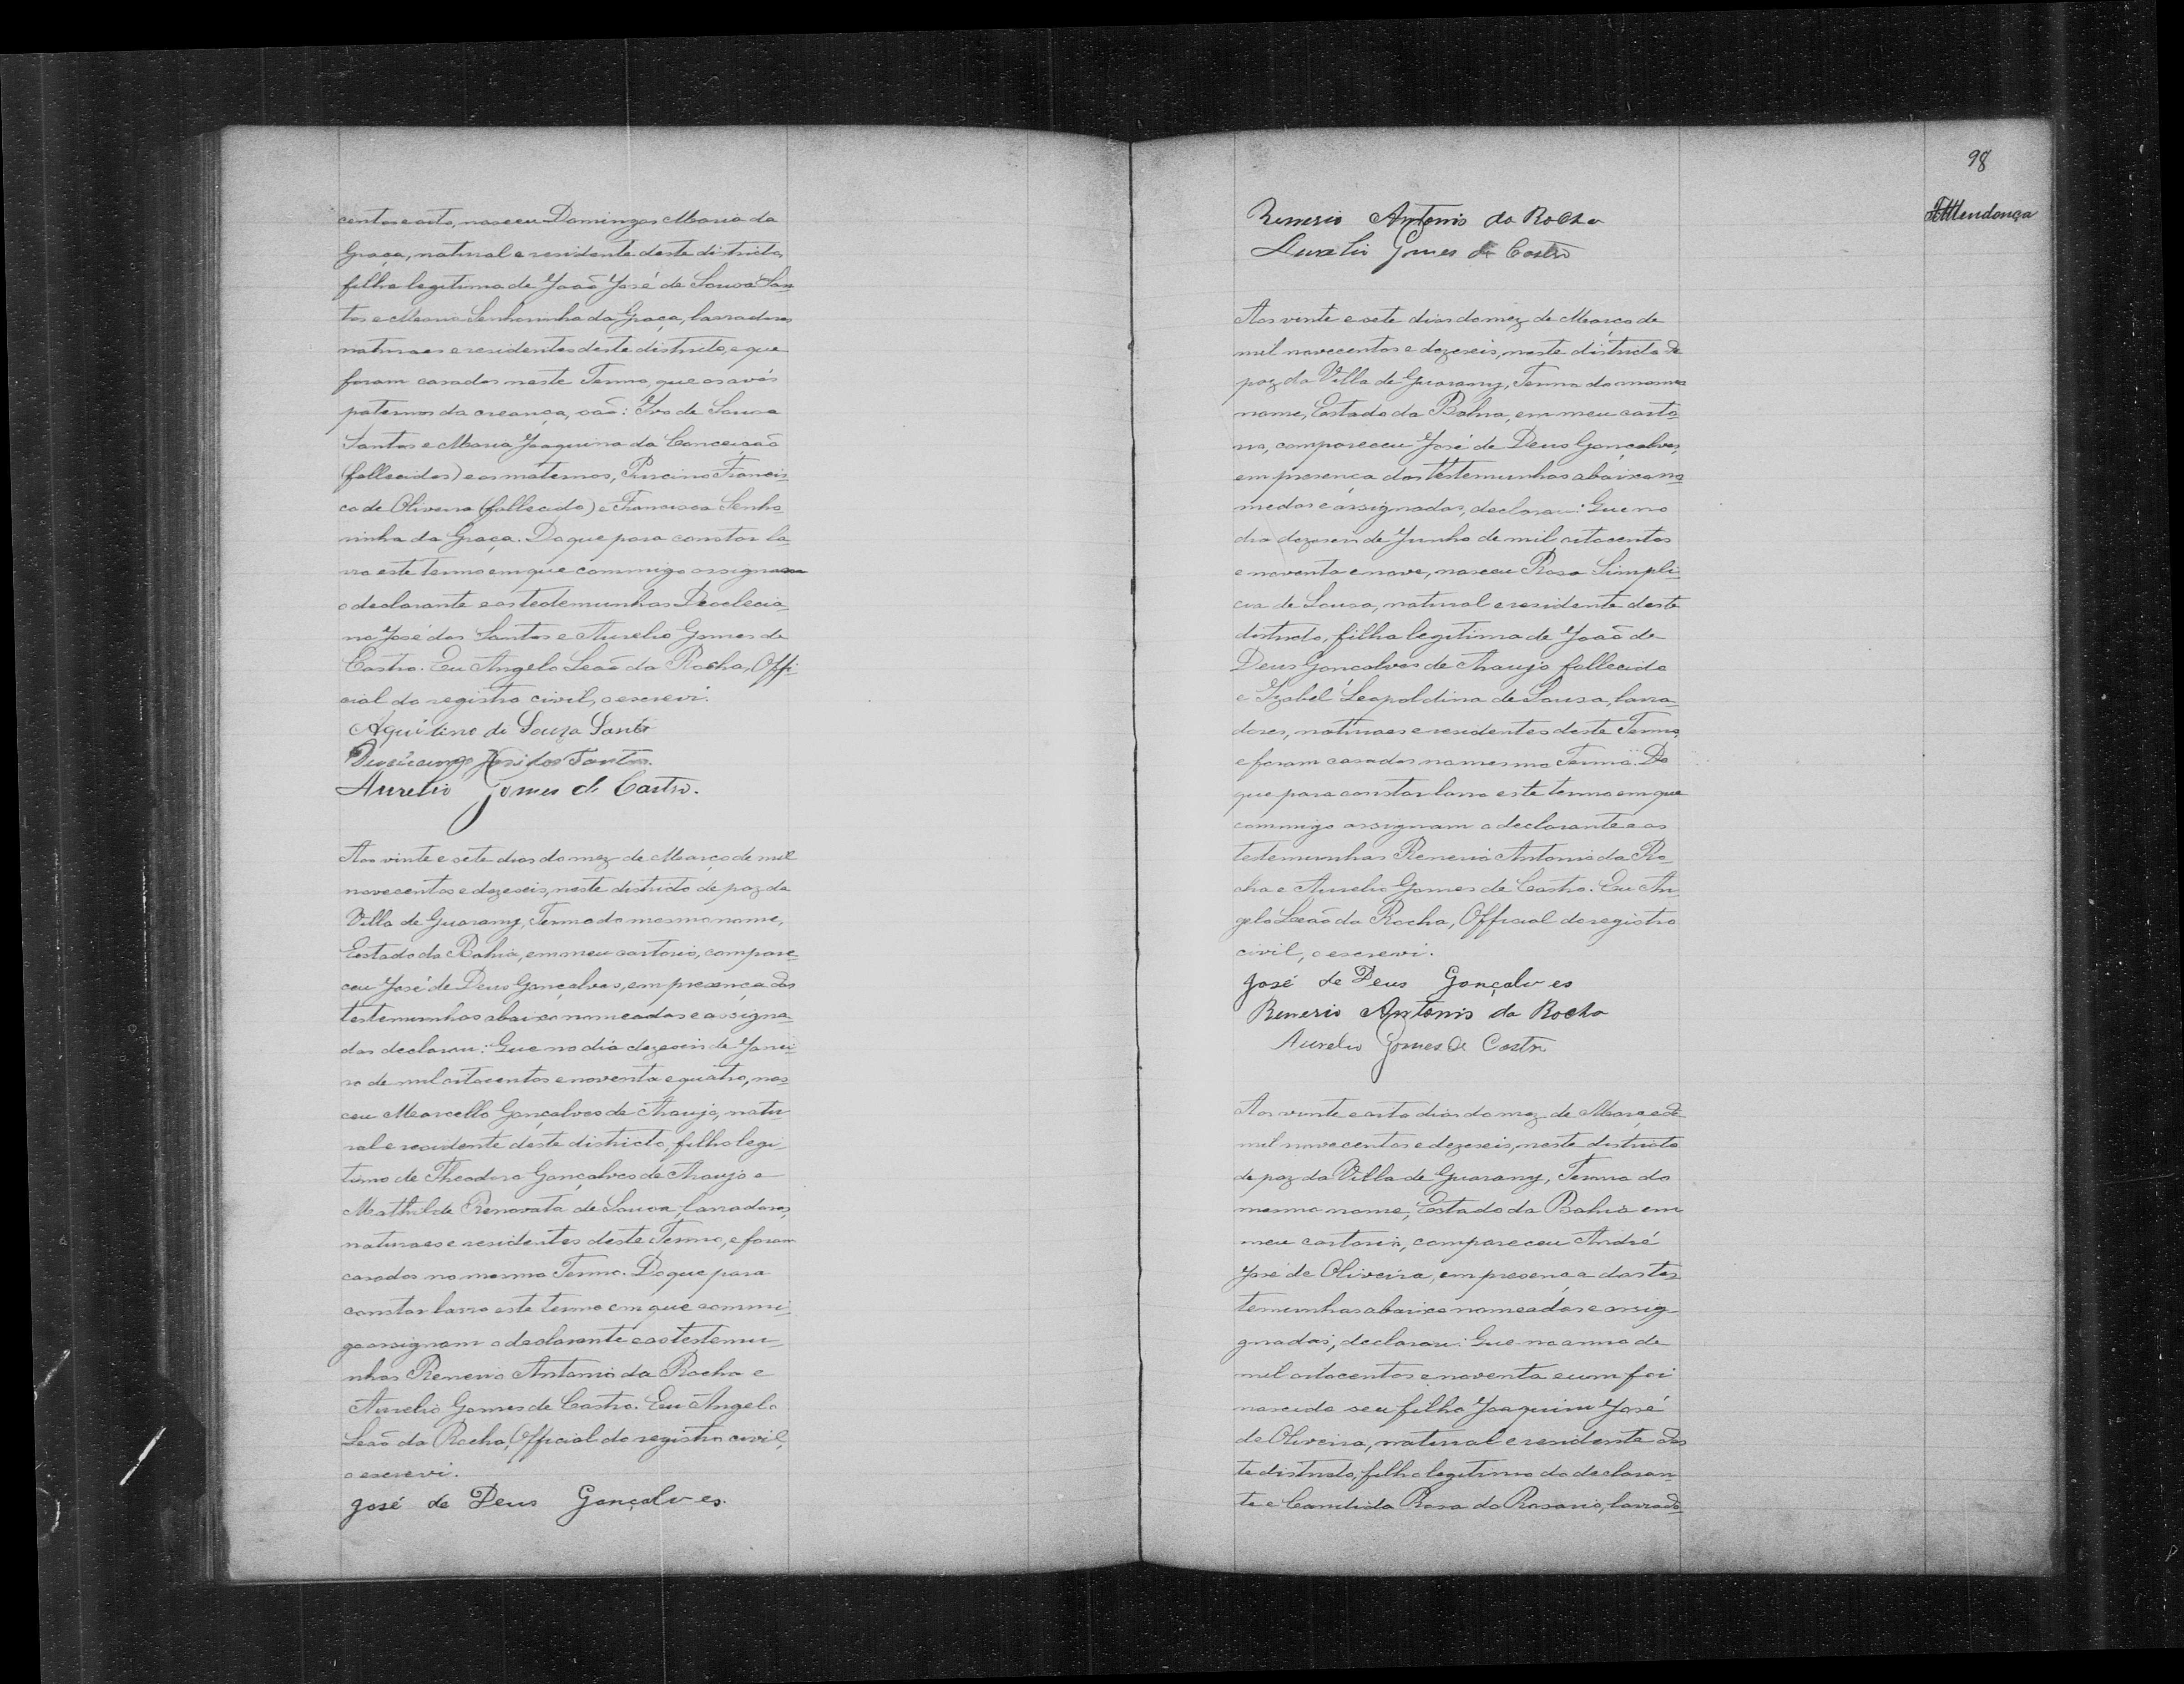 centos e oito, nasceu Domingas Maria da
Graça, natural e residente deste districto,
filha legitima de João José de Sousa San
tos e Maria Senhorinha da Graça, lavradores
naturaes e residentes deste districto, e que
foram casados neste Termo, que os avós
paternos da creança, são: Ivo de Sousa
Santos e Maria Joaquina da Conceição
(fallecidos) e os maternos, Francis
co de Oliveira (fallecido) e Francisca Senho
rinha da Graça. Do que para constar la
vro este termo em que commigo assignam
o declarante e as testemunhas Deoclecia
no José dos Santos e Aurelio Gomes de
Castro. Eu Angelo Leão da Rocha, Offi
cial do registro civil, o escrevi.
Aquilino de Souza Santos
Deocleciano José dos Santos.
Aurelio Gomes de Castro.
Aos vinte e sete dias do mez de Março de mil
novecentos e dezeseis, neste districto de paz da
Villa de Guarany, Termo do mesmo nome,
Estado da Bahia, em meu cartorio, compare
ceu José de Deus Gonçalves, em presença das
testemunhas abaixo nomeadas e assigna
das declarou: Que no dia dezeseis de Janei
ro de mil oitocentos e noventa e quatro, nas
ceu Marcello Gonçalves de Araujo, natu
ral e residente deste districto, filho legi
timo de Theodoro Gonçalves de Araujo e
Mathilde Renovata de Sousa, lavradores,
naturaes e residentes deste Termo, e foram
casados no mesmo Termo. Do que para
constar lavro este termo em que commi
go assignam o declarante e as testemu
nhas Renerio Antonio da Rocha e
Aurelio Gomes de Castro. Eu Angelo
Leão da Rocha, Official do registro civil,
o escrevi.
José de Deus Gonçalves.
98
Mendonça
Renerio Antonio da Rocha
Aurelio Gomes de Castro
Aos vinte e sete dias do mez de Março de
mil novecentos e dezeseis, neste districto de
paz da Villa de Guarany, Termo do mesmo
nome, Estado da Bahia, em meu carto
rio, compareceu José de Deus Gonçalves,
em presença das testemunhas abaixo no
meadas e assignadas, declarou: Que no
dia dezeseis de Junho de mil oitocentos
e noventa e nove, nasceu Rosa Simpli
cia de Sousa, natural e residente deste
districto, filha legitima de João de
Deus Gonçalves de Araujo fallecido
e Izabel Leopoldina de Sousa, lavra
dores, naturaes e residentes deste Termo,
e foram casados no mesmo Termo. Do
que para constar lavro este termo em que
commigo assignam o declarante e as
testemunhas Renerio Antonio da Ro
cha e Aurelio Gomes de Castro. Eu An
gelo Leão da Rocha, Official do registro
civil, o escrevi.
José de Deus Gonçalves
Renerio Antonio da Rocha
Aurelio Gomes de Castro
Aos vinte e oito dias do mez de Março de
mil novecentos e dezeseis, neste districto
de paz da Villa de Guarany, Termo do
mesmo nome, Estado da Bahia em
meu cartorio, compareceu André
José de Oliveira, em presença das tes
temunhas abaixo nomeadas e assig
gnadas, declarou: Que no anno de
mil oitocentos e noventa e um foi
nascido seu filho Joaquim José
de Oliveira, natural e residente des
te districto, filho legitimo do declaran
te e Candida Rosa do Rosario, lavrado